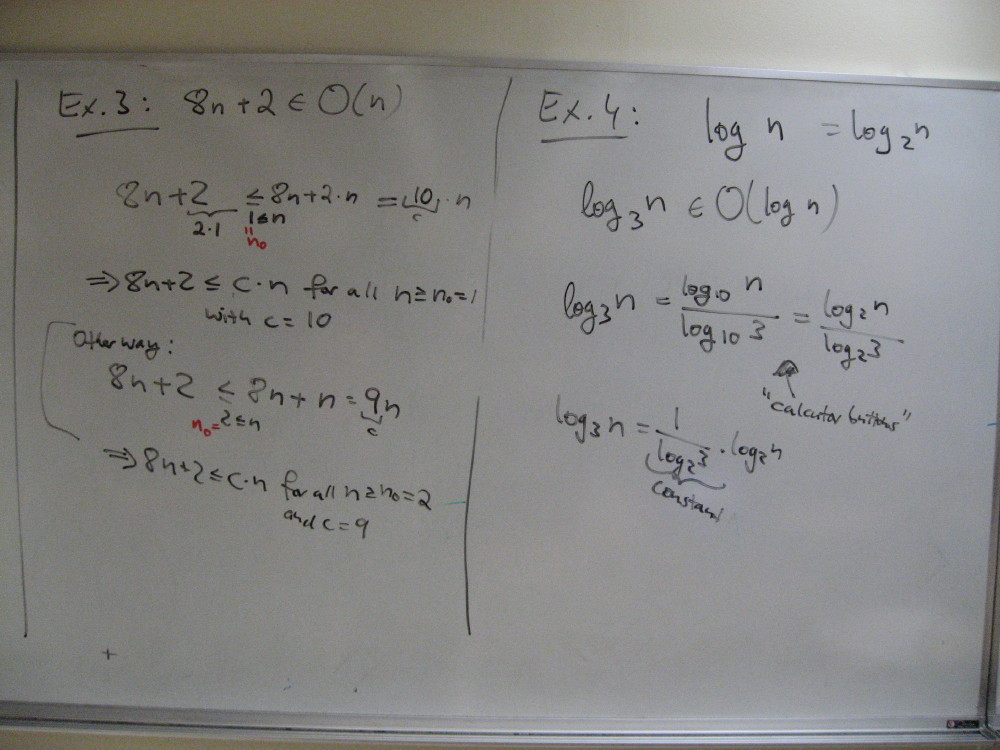 Ex. 3: 8n + 2 ∈ O(n)
8n + 2 ≤ 8n + 2·n = 10 · n
2·1 1≤n c
" n₀
⇒ 8n+2 ≤ c·n for all n ≥ n₀ = 1
with c = 10
Other way:
8n + 2 ≤ 8n + n = 9n
n₀ = 2 ≤ n c
⇒ 8n+2 ≤ c·n for all n ≥ n₀ = 2
and c = 9
Ex. 4: log n = log₂ n
log₃ n ∈ O(log n)
log₃ n = log₁₀ n / log₁₀ 3 = log₂ n / log₂ 3
"calcutor buttons"
log₃ n = 1 / log₂ 3 · log₂ n
constant